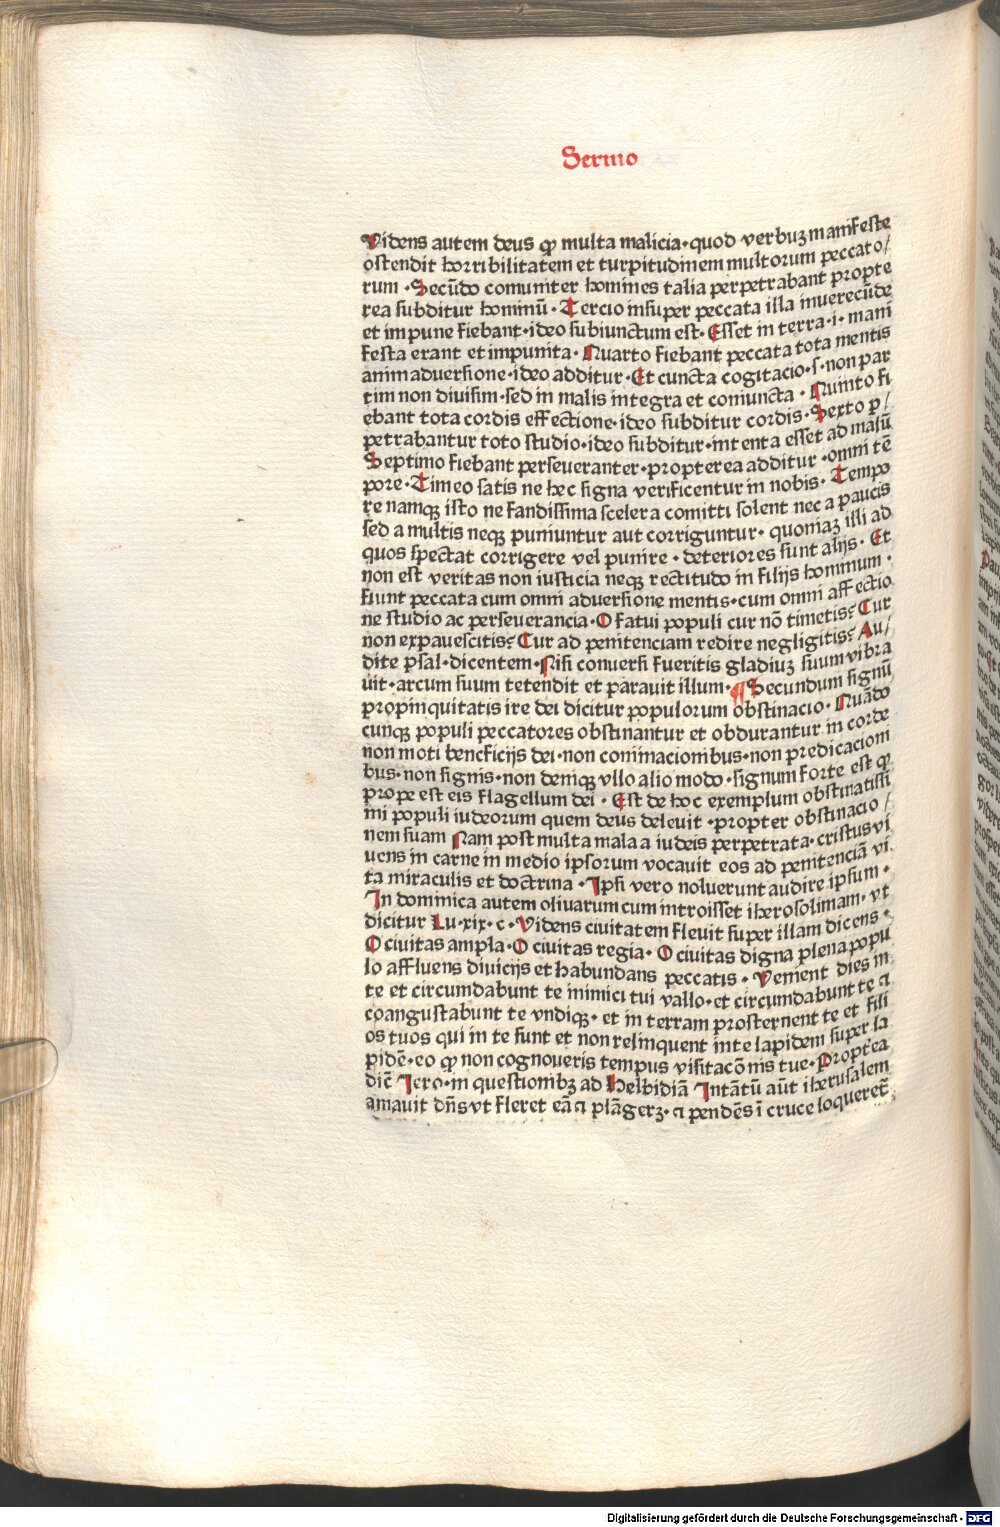 Sermo
Videns autem deus ꝙ multa malicia·quod verbuꝫ manifeste
ostendit horribilitatem et turpitudinem multorum peccato/
rum ·Secūdo comuniter homines talia perpetrabant propte
rea subditur hominū · Tercio insuper peccata illa inuerecūde
et impune fiebant·ideo subiunctum est· Esset in terra·i· mani
festa erant et impunita· Quarto fiebant peccata tota mentis
animaduersione·ideo additur·Et cuncta cogitacio·s·non par
tim non diuisim·sed in malis integra et coniuncta · Quinto fi
ebant tota cordis effectione·ideo subditur cordis·Sexto p̲/
petrabantur toto studio·ideo subditur·intenta esset ad malū
Septimo fiebant perseueranter·propterea additur ·omni tē
pore·Timeo satis ne hec signa verificentur in nobis· Tempo
re namqꝫ isto nefandissima scelera comitti solent nec a paucis
sed a multis neqꝫ puniuntur aut corriguntur· quoniaꝫ illi ad
quos spectat corrigere vel punire · deteriores sunt alijs· Et
non est veritas non iusticia neqꝫ rectitudo in filijs hominum ·
fiunt peccata cum omni aduersione mentis·cum omni affectio
ne studio ac perseuerancia·O fatui populi cur nō timetis? Cur
non expauescitis? Cur ad penitenciam redire negligitis? Au/
dite psal·dicentem·Nisi conuersi fueritis gladiuꝫ suum vibra
uit·arcum suum tetendit et parauit illum·¶ Secundum signū
propinquitatis ire dei dicitur populorum obstinacio· Quādo
cunqꝫ populi peccatores obstinantur et obdurantur in corde
non moti beneficijs dei·non comminacionibus·non predicacioni
bus·non signis·non deniqꝫ vllo alio modo·signum forte est ꝙ
prope est eis flagellum dei · Est de hoc exemplum obstinatissi
mi populi iudeorum quem deus deleuit ·propter obstinacio/
nem suam Nam post multa mala a iudeis perpetrata·cristus vi
uens in carne in medio ipsorum vocauit eos ad penitenciā vi
ta miraculis et doctrina ·Ipsi vero noluerunt audire ipsum·
In dominica autem oliuarum cum introisset iherosolimam·vt
dicitur Lu·xix·c·Videns ciuitatem fleuit super illam dicens·
O ciuitas ampla·O ciuitas regia· O ciuitas digna plena popu
lo affluens diuicijs et habundans peccatis · Venient dies in
te et circumdabunt te inimici tui vallo·et circumdabunt te ⁊
coangustabunt te vndiqꝫ· et in terram prosternent te et fili
os tuos qui in te sunt et non relinquent in te lapidem super la
pidē·eo ꝙ non cognoueris tempus visitacōnis tue·Propt̄ea
dic̄ Jero·in questionibꝫ ad Helbidiā Intātū aūt iherusalem
amauit dn̄s vt fleret eā ⁊ plāgerꝫ·⁊ pendēs ī cruce loqueret̄
Digitalisierung gefördert durch die Deutsche Forschungsgemeinschaft - DFG